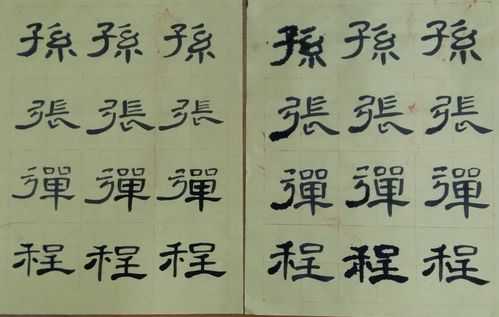 孫孫孫
張張張
彈彈彈
程程程
孫孫孫
張張張
彈彈彈
程程程